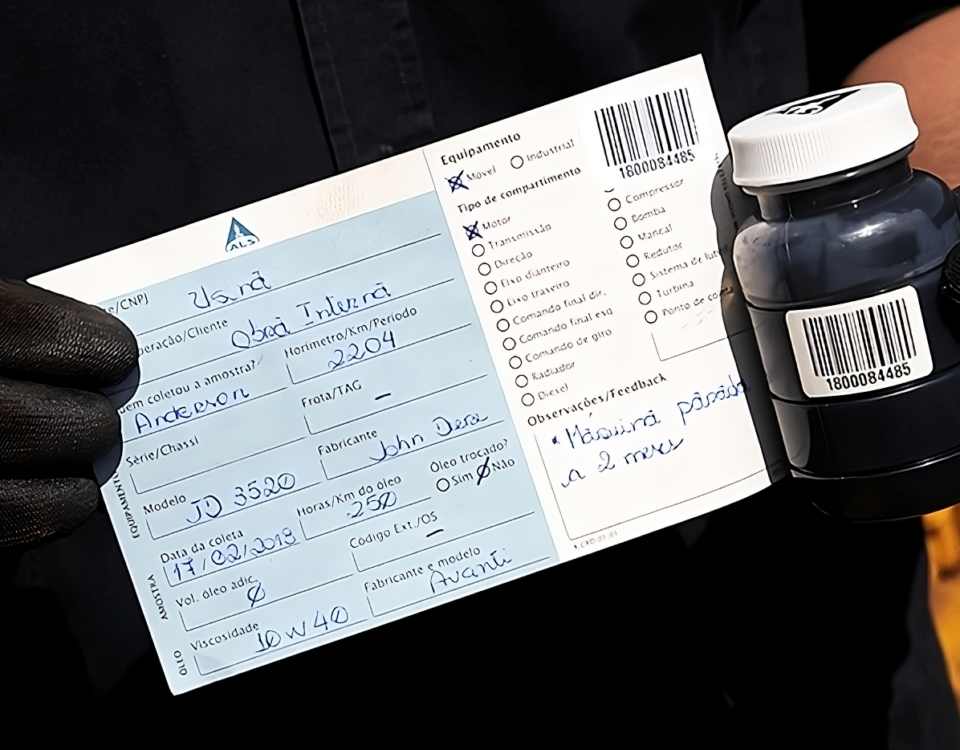 ALS
/CNPJ Usina
peração/Cliente Obra Interna
em coletou a amostra? Anderson
Horímetro/Km/Período 2204
Série/Chassi
Frota/TAG –
Modelo JD 3520
Fabricante John Deere
Data da coleta 17/02/2013
Horas/Km do óleo 250
Óleo trocado?
Sim Não
Vol. óleo adic. Ø
Código Ext./OS –
Viscosidade 10W40
Fabricante e modelo Avanti
AMOSTRA
ÓLEO
Equipamento
Móvel Industrial
Tipo de compartimento
Motor
Transmissão
Direção
Eixo dianteiro
Eixo traseiro
Comando final dir.
Comando final esq
Comando de giro
Radiador
Diesel
1800084485
Compressor
Bomba
Mancal
Redutor
Sistema de
Turbina
Ponto de
Observações/Feedback
* Máquina parada
a 2 meses
1800084485